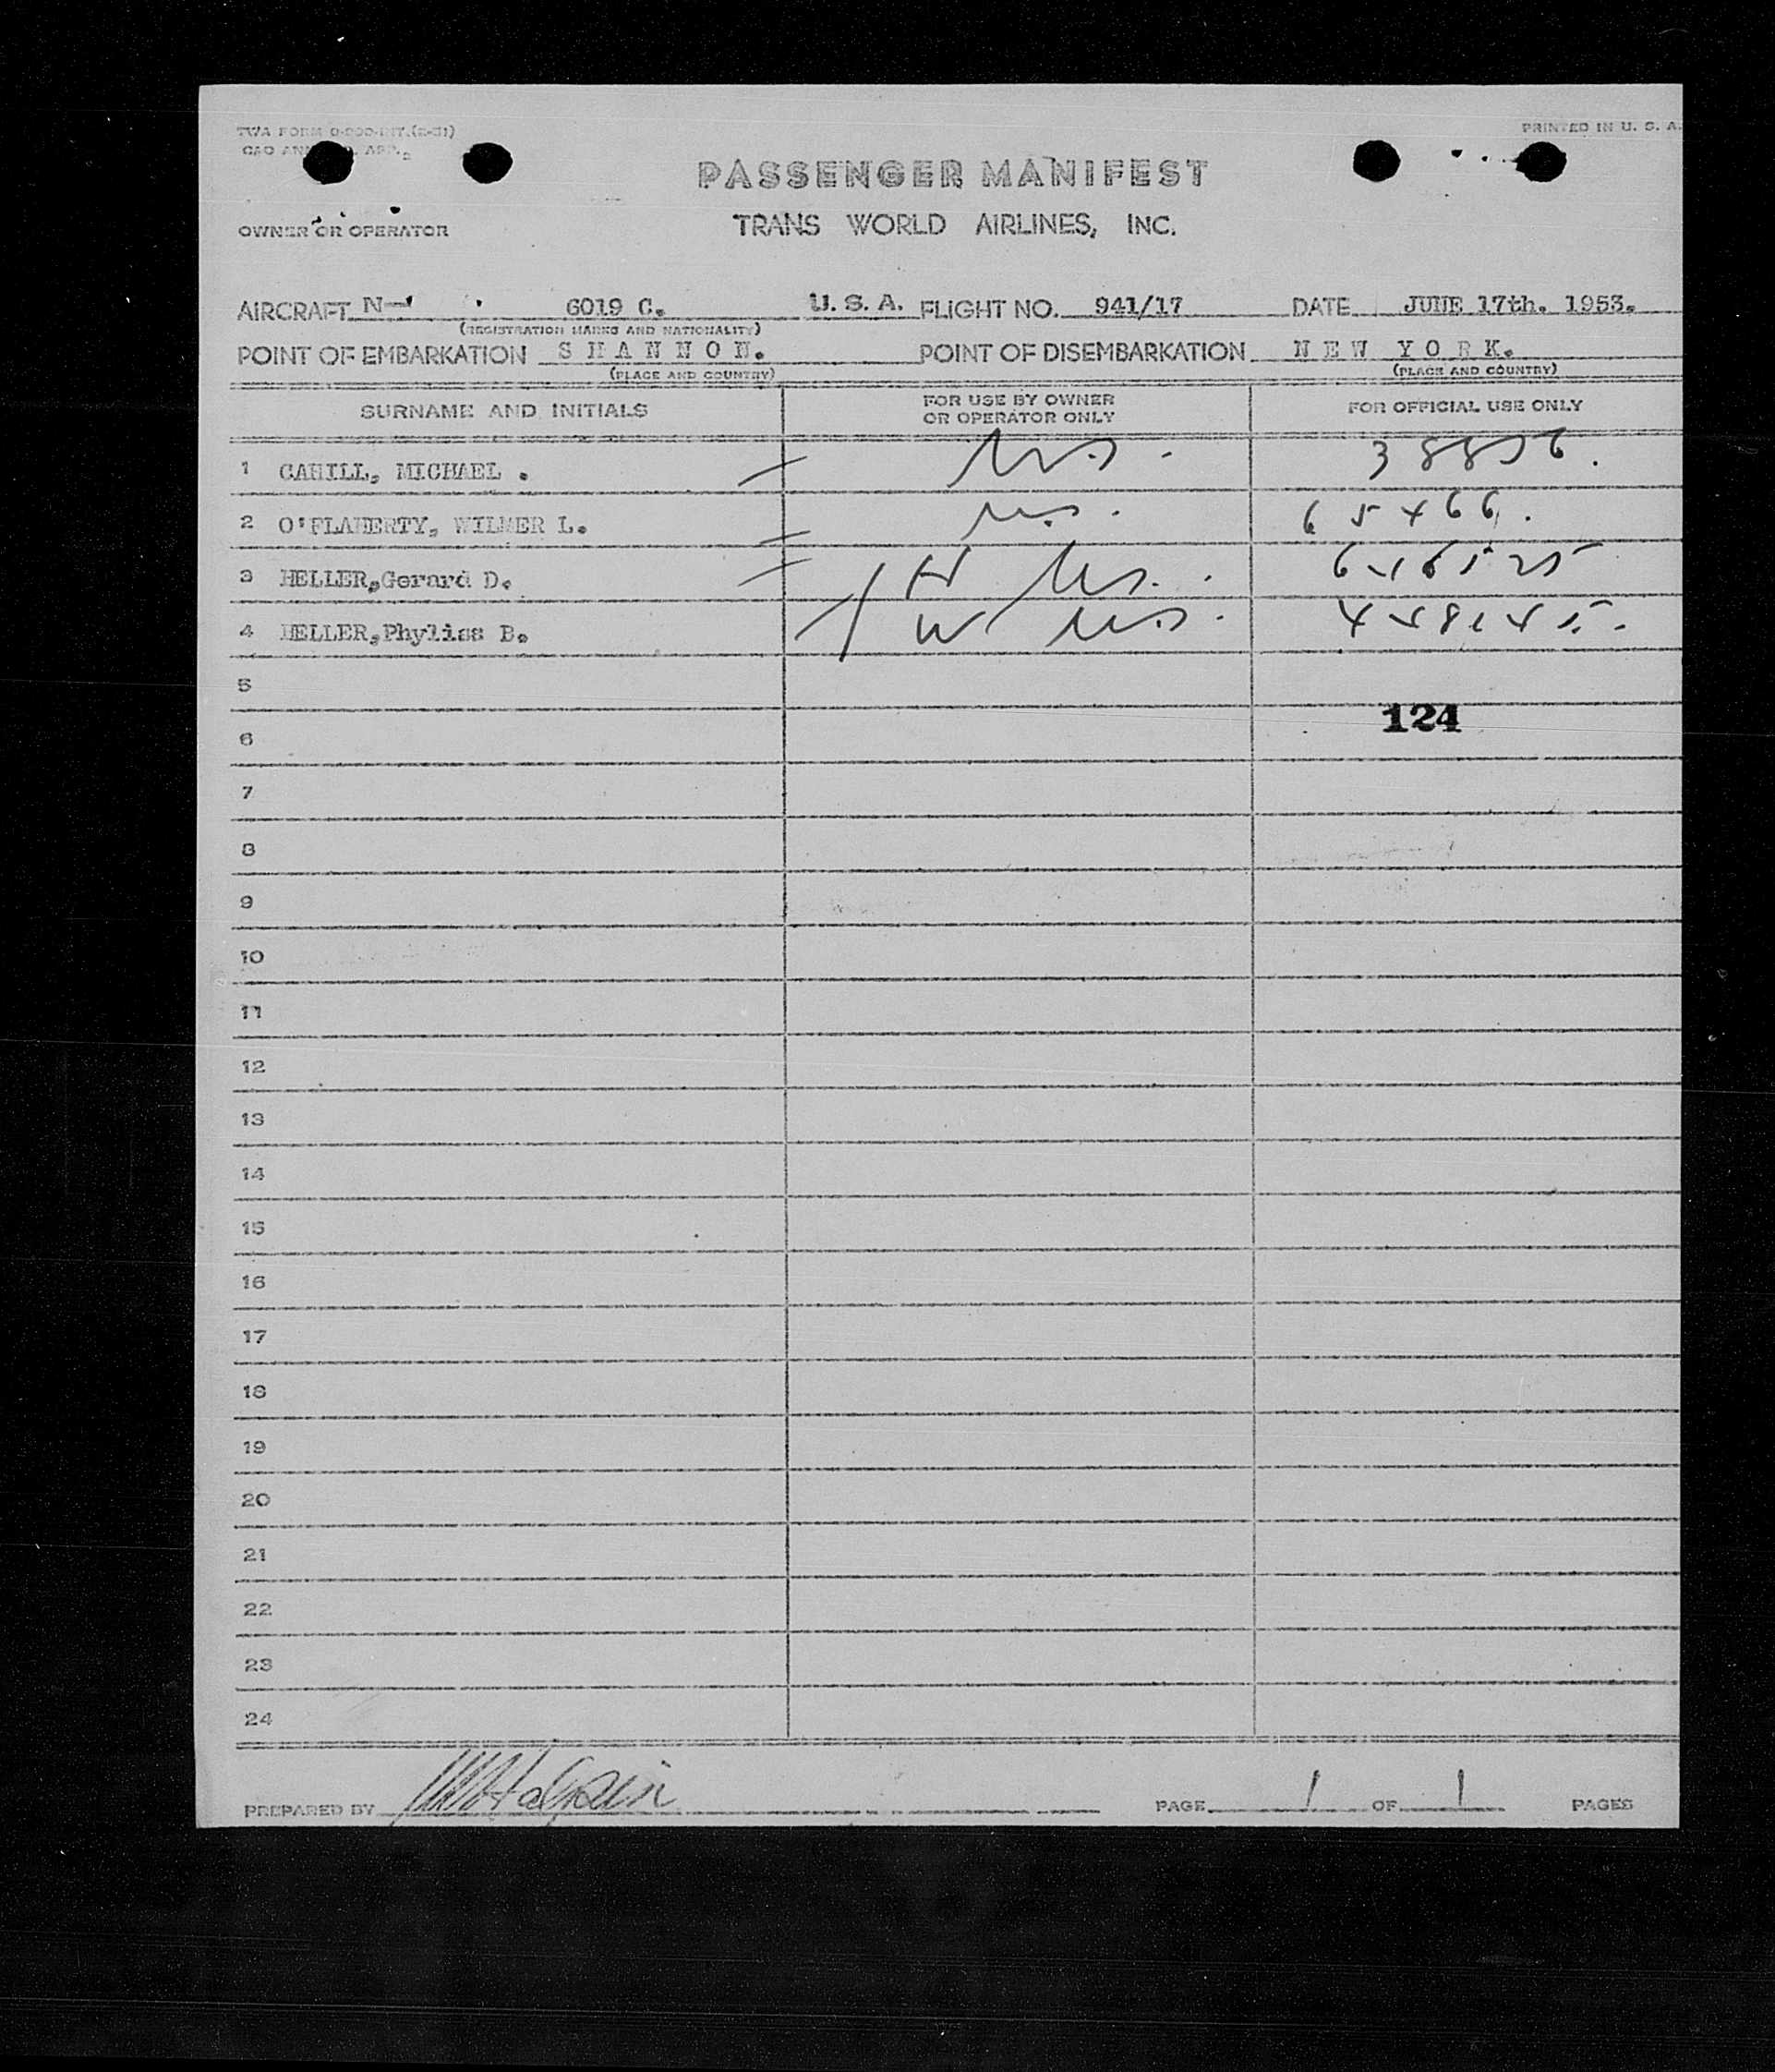 TWA FORM
PRINTED IN U. S. A.
PASSENGER MANIFEST
OWNER OR OPERATOR TRANS WORLD AIRLINES, INC.
AIRCRAFT N- 6019 C. U. S. A. FLIGHT NO. 941/17 DATE JUNE 17th. 1953.
(REGISTRATION MARKS AND NATIONALITY)
POINT OF EMBARKATION S H A N N O N. POINT OF DISEMBARKATION N E W Y O R K.
(PLACE AND COUNTRY) (PLACE AND COUNTRY)
SURNAME AND INITIALS FOR USE BY OWNER OR OPERATOR ONLY FOR OFFICIAL USE ONLY
1 CAHILL, MICHAEL .
2 O'FLAHERTY, WILMER L.
3 HELLER,Gerard D. H
4 HELLER,Phyliss B. W
5
124
6
7
8
9
10
11
12
13
14
15
16
17
18
19
20
21
22
23
24
PREPARED BY PAGE 1 OF 1 PAGES